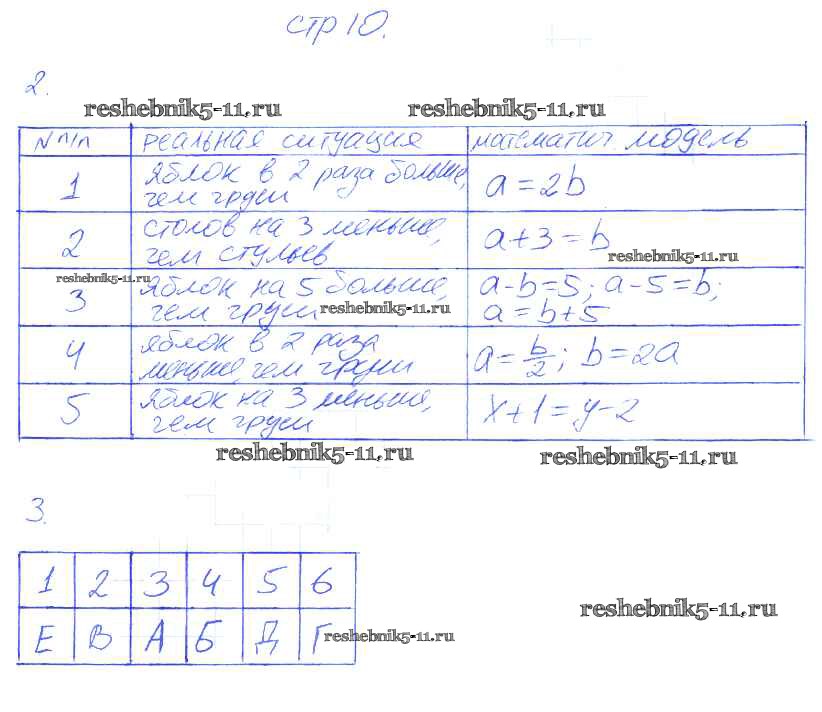 стр 10.
2.
reshebnik5-11.ru reshebnik5-11.ru
N п/п реальная ситуация математич. модель
1 яблок в 2 раза больше, чем груш a = 2b
2 столов на 3 меньше, чем стульев a + 3 = b
reshebnik5-11.ru
reshebnik5-11.ru
3 яблок на 5 больше, чем груш a - b = 5; a - 5 = b; a = b + 5
reshebnik5-11.ru
4 яблок в 2 раза меньше, чем груши a = b/2; b = 2a
5 яблок на 3 меньше, чем груш x + 1 = y - 2
reshebnik5-11.ru reshebnik5-11.ru
3.
1 2 3 4 5 6
reshebnik5-11.ru
Е В А Б Д Г
reshebnik5-11.ru